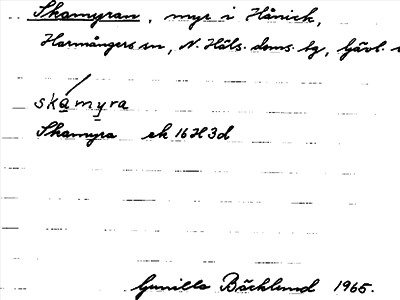 Skamyran, myr i Hånick,
Harmångers sn, N. Häls. doms. bg, Gävl.
skamyra
Skamyra ek 16H3d
Gunilla Bäcklund 1965.